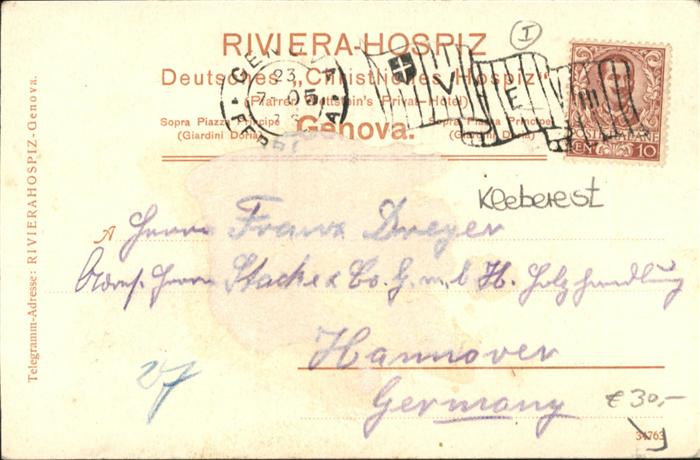 I
RIVIERA-HOSPIZ
Deutsches „Christliches Hospiz"
(Pfarrer Privat-Hotel)
Sopra Piazza Principe
(Giardini Doria)
Genova.
Sopra Piazza Principe
(Giardini Doria)
23
7- 05
V E III
10
Telegramm-Adresse: RIVIERAHOSPIZ-Genova.
Kleberest
Herrn Franz Dreyer
Adres. Herrn Stacke & Co. G. m. b. H. Holzhandlung
Hannover
Germany
€ 30,-
34763